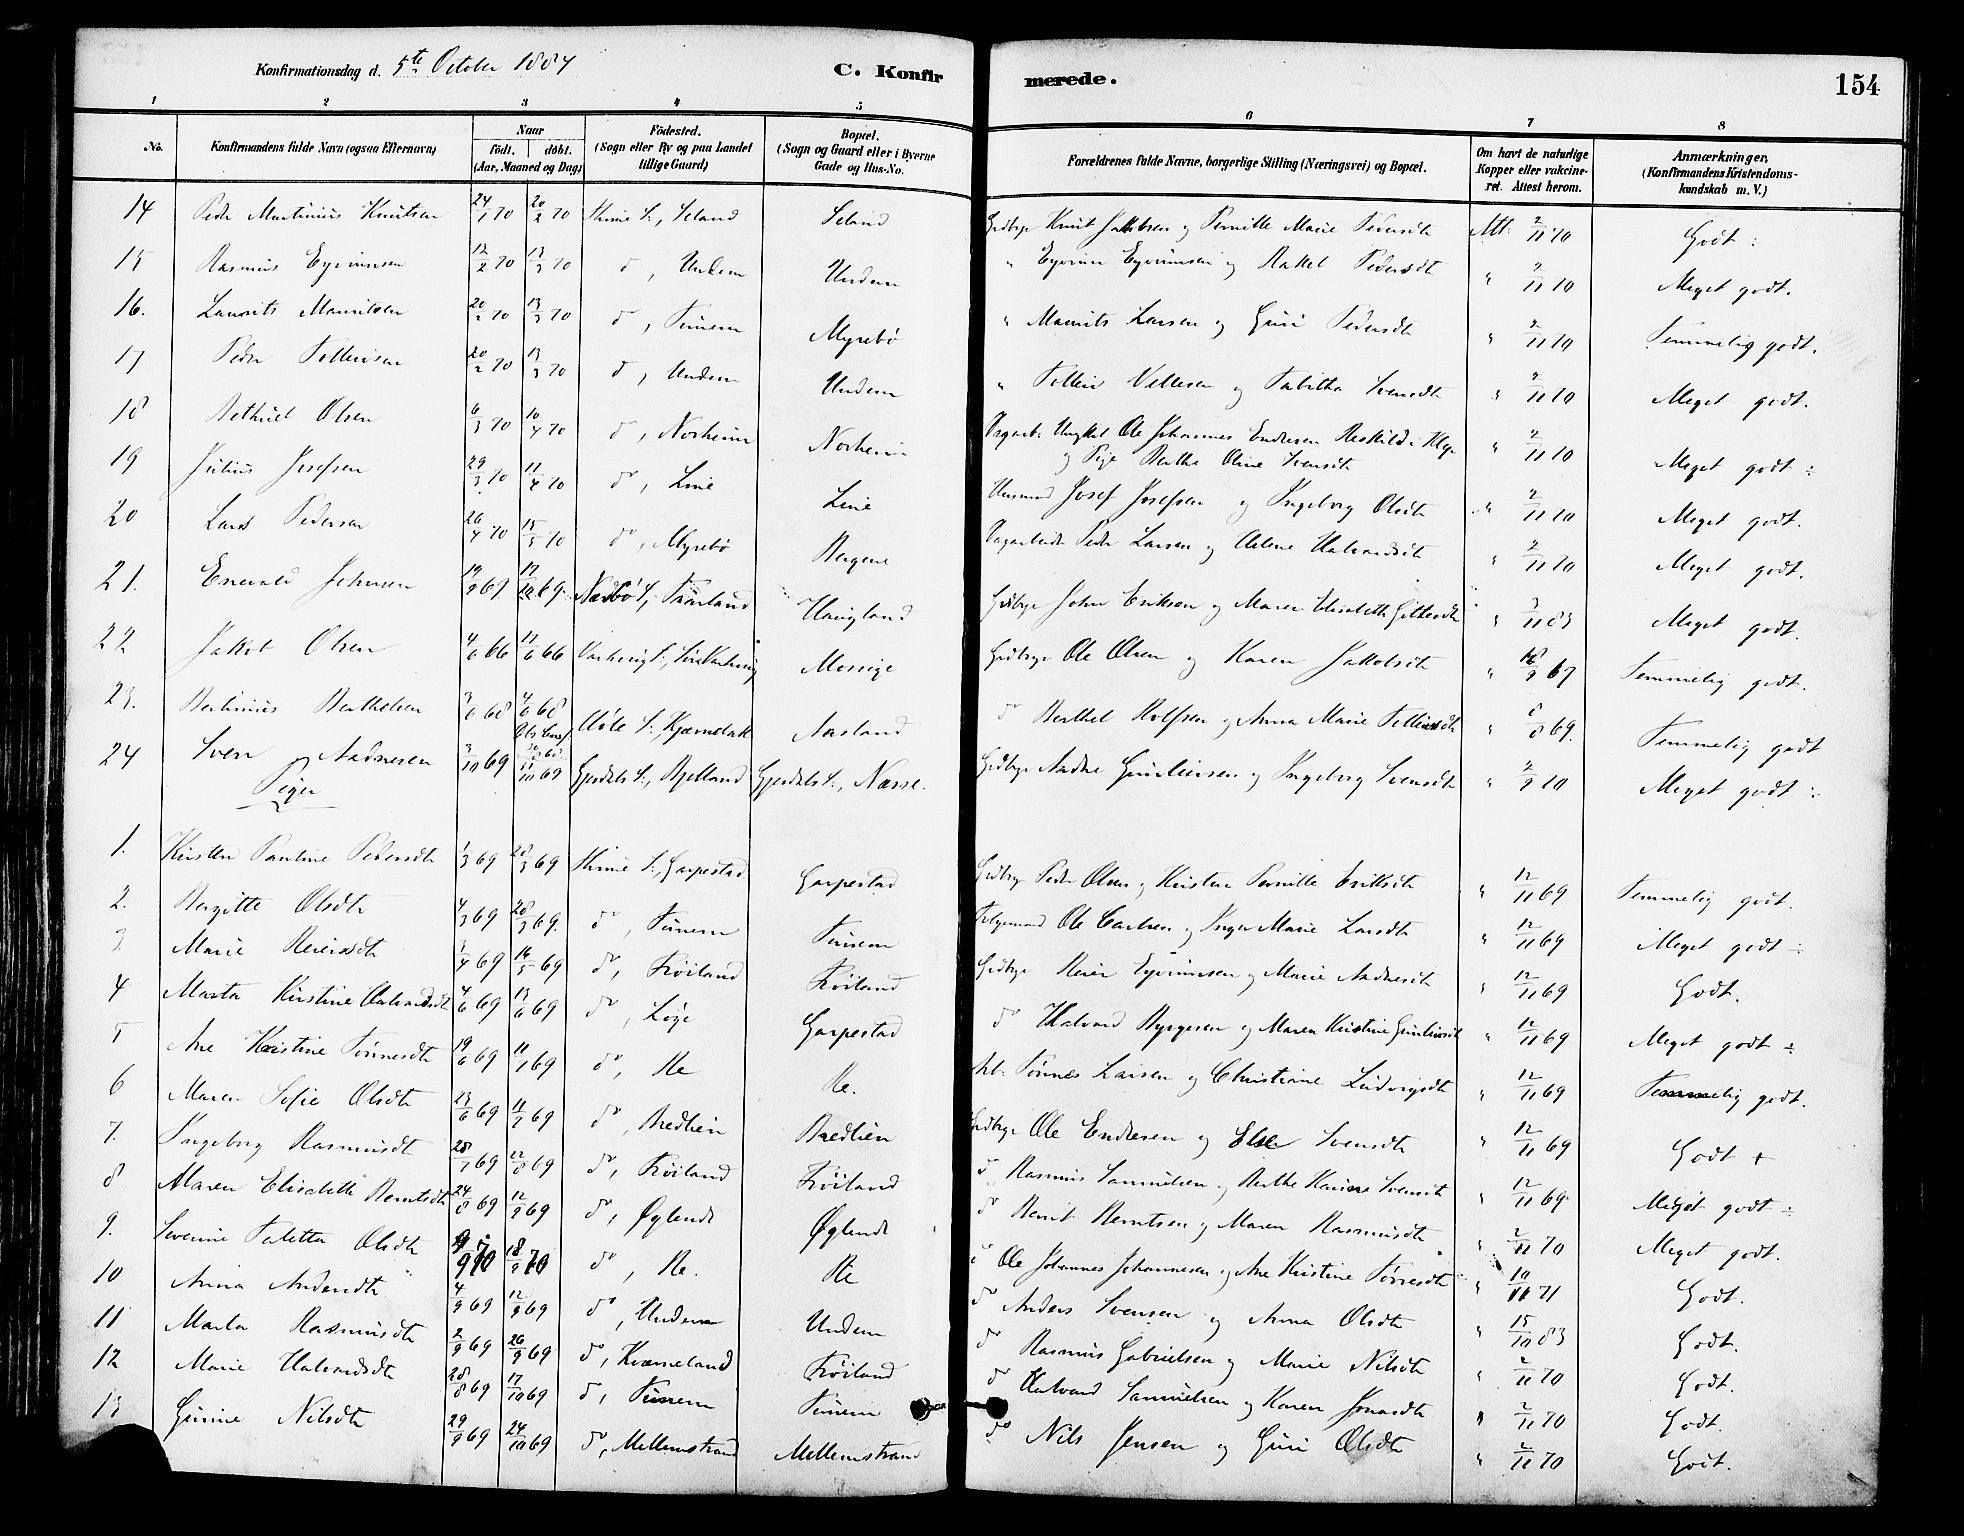 Konfirmationsdag d. 5te October 1884
C. Konfirmerede.
154
1 2 3 4 5 6 7 8
No. Konfirmandens fulde Navn (ogsaa Efternavn) Naar födt. döbt. (Aar, Maaned og Dag) Födested. (Sogn eller By og paa Landet tillige Gaard) Bopæl. (Sogn og Gaard eller i Byerne Gade og Hus-No.
Forældrenes fulde Navne, borgerlige Stilling (Næringsvei) og Bopæl. Om havt de naturlige Kopper eller vakcineret. Attest herom. Anmærkninger, (Konfirmandens Kristendomskundskab m. V.)
14 Peder Martinius Knutsen 24/1 70 20/2 70 Thime S., Seland Seland Grdbrgr Knut Jakobsen og Pernille Marie Pedersdt Att. 2/11 70 Godt ÷
15 Rasmus Eyvinnsen 12/2 70 13/3 70 do, Undem Undem " Eyvinn Eyvinnsen og Rakel Pedersdt " 2/11 70 Meget godt.
16. Laurits Mauritsen 20/2 70 13/3 70 do, Tunem Myrebø " Maurits Larsen og Guri Pedersdt " 2/11 70 Temmelig godt.
17 Peder Tolleivsen 20/2 70 13/3 70 do, Undem Undem " Tolleiv Nillesen og Tabitha Svensdt " 2/11 70 Meget godt.
18 Bethuel Olsen 6/3 70 10/4 70 do, Norheim Norheim Dagarb. Ungkel Ole Johannes Endresen Reskild i Klep og Pige Berthe Oline Svensdt " 2/11 70 Meget godt ÷
19 Julius Josefsen 29/3 70 11/4 70 do, Line Line Husmand Josef Josefsen og Ingeborg Olsdt " 2/11 70 Meget godt.
20 Lars Pedersen 26/4 70 15/5 70 do, Myrebø Bergene Dagarbeider Peder Larsen og Helene Halvardsdt " 2/11 70 Meget godt.
21. Enevald Johnsen 19/9 69 17/10 69 Nærbø S., Taarland Haugland Grdbrgr John Eriksen og Maren Elisabeth Gitlesdt " 3/11 83 Meget godt.
22 Jakob Olsen 4/6 66 17/6 66 Varhoug S., Mossige Grdbrgr Ole Olsen og Karen Jakobsdt " 18/9 67 Temmelig godt.
23. Bertinius Berthelsen 3/6 68 4/6 68 Høle S., Aasland do Berthel Rolfsen og Anna Marie Tolleivsdt " 8/8 69. Temmelig godt
24 Sven Aadnesen 3/10 69 17/10 69 Gjesdals S., Bjelland Gjesdals S., Næsse. Grdbrgr Aadne Gunleivsen og Ingeborg Svensdt " 2/9 70 Meget godt ÷
Piger
1. Kirsten Pauline Pedersdt 1/3 69 28/3 69 Thime S., Garpestad Garpestad Grdbrgr Peder Olsen og Kirsten Pernille Eriksdt " 12/11 69 Temmelig godt.
2. Bergitte Olsdt 4/3 69 28/3 69. do, Tunem Tunem Ole Carlsen og Inger Marie Larsdt " 12/11 69 Meget godt ÷
3. Marie Reiersdt 3/4 69 16/5 69 do, Frøiland Frøiland Grdbrgr Reier Eyvinnsen og Marie Aadnesdt " 12/11 69 Godt.
4 Marta Kirstine Halvardsdt 4/6 69 13/6 69 do, Løge Garpestad do Halvard Byrgesen og Maren Kristine Gunleivsdt " 12/11 69 Meget godt ÷
5 Ane Kristine Tønnesdt 19/6 69 11/7 69 do, Re Re. Arb. Tønnes Larsen og Christiane Ludvigsdt " 12/11 69 Temmelig godt.
6 Maren Sofie Olsdt 13/6 69 11/7 69 do, Bredlien Bredlien Grdbrgr Ole Endresen og Else Svensdt " 12/11 69 Godt +
7. Ingeborg Rasmusdt 28/7 69 22/8 69 do, Frøiland Frøiland do Rasmus Samuelsen og Berthe Karine Svensdt " 12/11 69 Meget godt ÷
8 Maren Elisabeth Berntsdt 24/8 69 12/9 69 do, Øglende Øglende do Bernt Berntsen og Maren Rasmusdt " 2/11 70 Meget godt.
9. Severine Taletta Olsdt 9/9 70 18/9 70 do, Re. Re do Ole Johannes Johannesen og Ane Kristine Torresdt " 10/11 71 Godt.
10 Anna Andersdt 4/9 69 12/9 69 do, Undem Undem do Anders Svensen og Anna Olsdt " 15/10 83 Godt.
11 Marta Rasmusdt 2/9 69 26/9 69 do, Kværneland Frøiland do Rasmus Gabrielsen og Marie Nilsdt " 2/11 70 Godt.
12 Marie Halvardsdt 28/8 69 17/10 69 do, Tunem Tunem do Halvard Samuelsen og Karen Jonasdt " 2/11 70 Godt.
13 Gurine Nilsdt 29/9 69 24/10 69 do, Mellemstrand Mellemstrand do Nils Jensen og Guri Olsdt " 2/11 70 Godt.